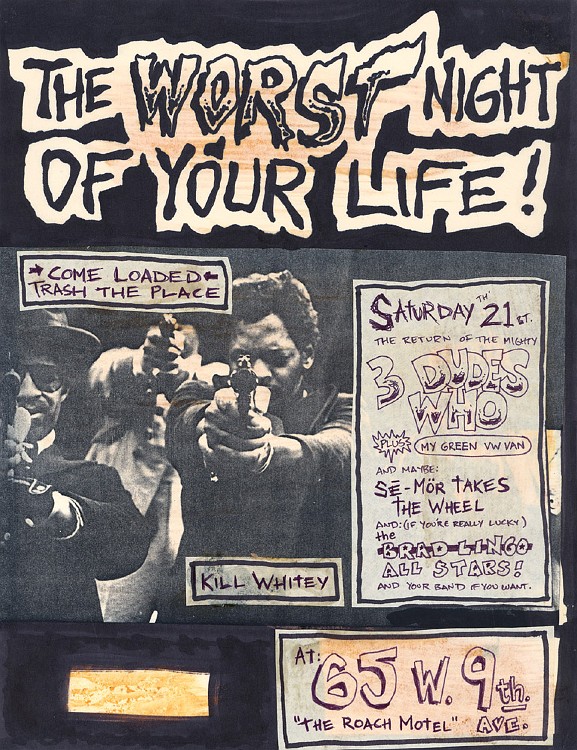 THE WORST NIGHT
OF YOUR LIFE!
COME LOADED
TRASH THE PLACE
SATURDAY TH' 21ST.
THE RETURN OF THE MIGHTY
3 DUDES
WHO
PLUS MY GREEN VW VAN
AND MAYBE:
SĒ-MÖR TAKES
THE WHEEL
AND: (IF YOU'RE REALLY LUCKY)
the
BRAD LINGO
ALL STARS!
AND YOUR BAND IF YOU WANT.
KILL WHITEY
AT: 65 W. 9th.
"THE ROACH MOTEL" AVE.